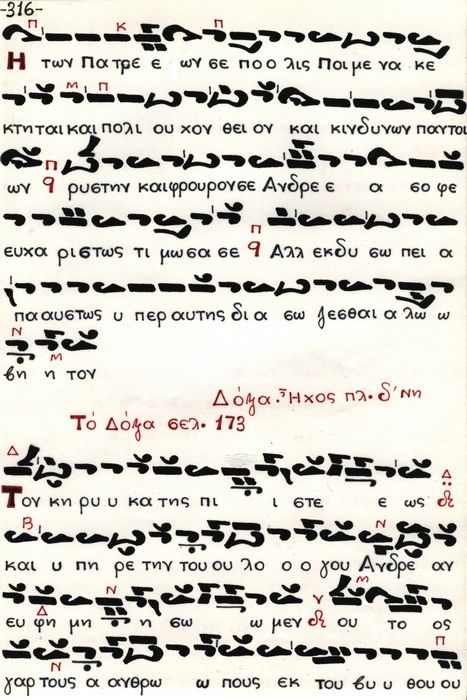 -316-
Π Κ Π
Η των Πα τρε ε ων σε πο ο λις Ποι με να κε
Μ Π
κτηται και πολι ου χον θει ον και κινδυνων παντοι
Π
ων q ρυστην και φρουρον σε Ανδρε ε α σο φε
Π
ευχα ριστως τι μωσα σε q Αλλ εκδυ σω πει α
πα αυστως υ περ αυτης δι α σω ζεσθαι α λω ω
Ν Μ
βη η τον
Δόξα. Ἦχος πλ. δ' Νη
Τό Δόξα σελ. 173
Δ Δ
Τον κη ρυ υ κα της πι ι στε ε ως
Β Ν
και υ πη ρε την του ου λο ο ο γου Ανδρε αν
Δ Ν Μ
ευ φη μη η σω ω μεν ου το ος
Ν Π
γαρ τους α ανθρω ω πους εκ του βυ υ θου ου